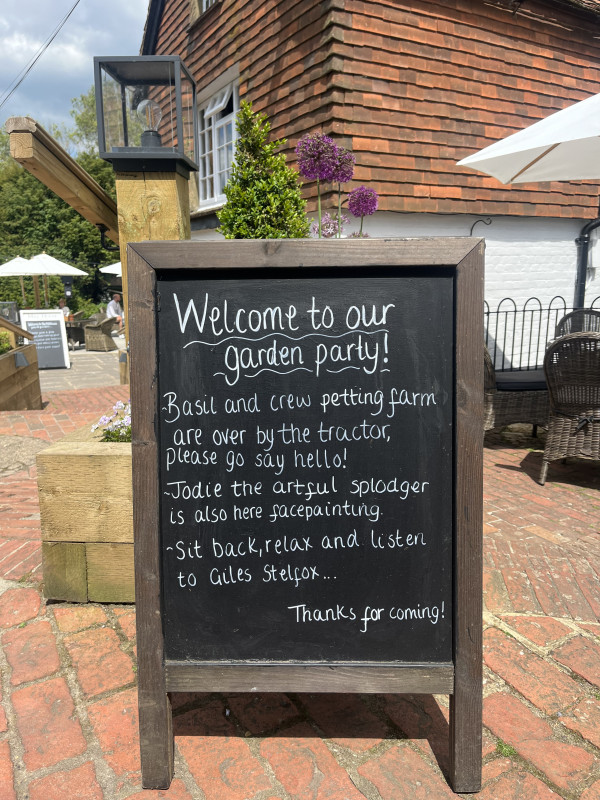 Welcome to our
garden party!
~Basil and crew petting farm
are over by the tractor,
please go say hello!
~Jodie the artful splodger
is also here facepainting.
~Sit back, relax and listen
to Giles Stelfox...
Thanks for coming!